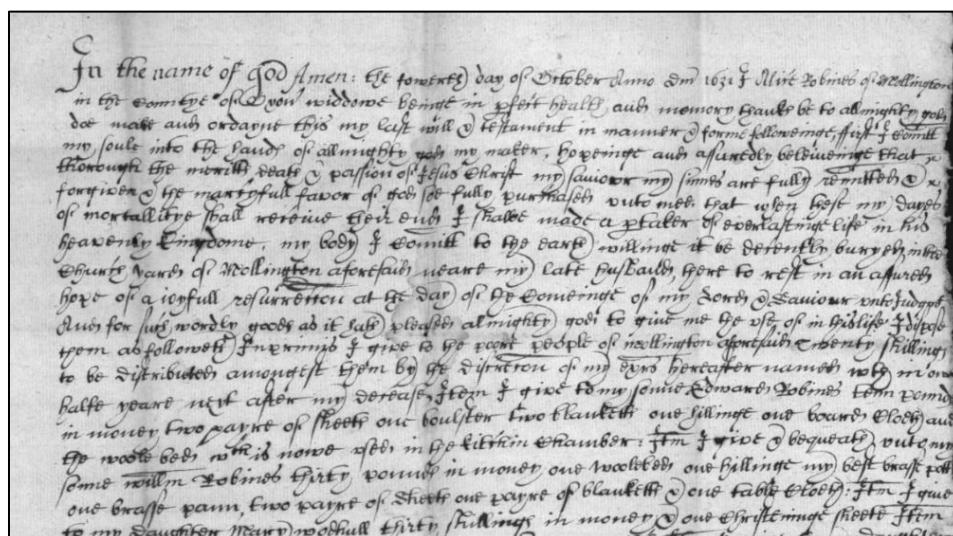 In the name of god Amen: the fowerth day of October Anno dm 1631 I Alice Robines of Mollington
in the Countye of Oxon widdowe beinge in pfeit health, and memory thanks be to allmighty god
doe make and ordayne this my last will & testament in manner & forme followeinge, first I Comitt
my soule into the hands of allmighty god my maker, hopeinge and assuredly beleiveinge that
thorough the meritts death & passion of Jesus Christ my saviour my sinnes are fully remitted &
forgiven & the mercyfull favor of god soe fully purchased unto mee that when these my dayes
of mortallitye shall receive their end I shalbe made a ptaker of everlastinge life in his
heavenly kingdome, my body I Comitt to the earth willinge it be decently buryed in the
Church yard of Mollington aforesaid neare my late husband, there to rest in an assured
hope of a joyfull resurrection at the day of the Comeinge of my Lord & Saviour unto Judgmt
And for such wordly goods as it hath pleased almighty god to give me the use of in this life I dispose
them as followeth Inprimis I give to the poore people of Mollington aforesaid twenty shillings
to be distributed amongest them by the discretion of my exrs hereafter named wth in one
halfe yeare next after my decease, Item I give to my sonne Edward Robines tenn pound
in money two payre of sheets one boulster two blanketts one hillinge one board Cloth, and
the woole bed wch is nowe used in the kitchin Chamber: Itm I give & bequeath unto my
sonne willm Robines thirty pounds in money, one woolebed one hillinge my best brasse pott
one brasse pann, two payre of sheets one payre of blanketts & one table Cloth: Itm I give
to my daughter Mary woodhull thirty shillings in money & one Christeninge sheete Item